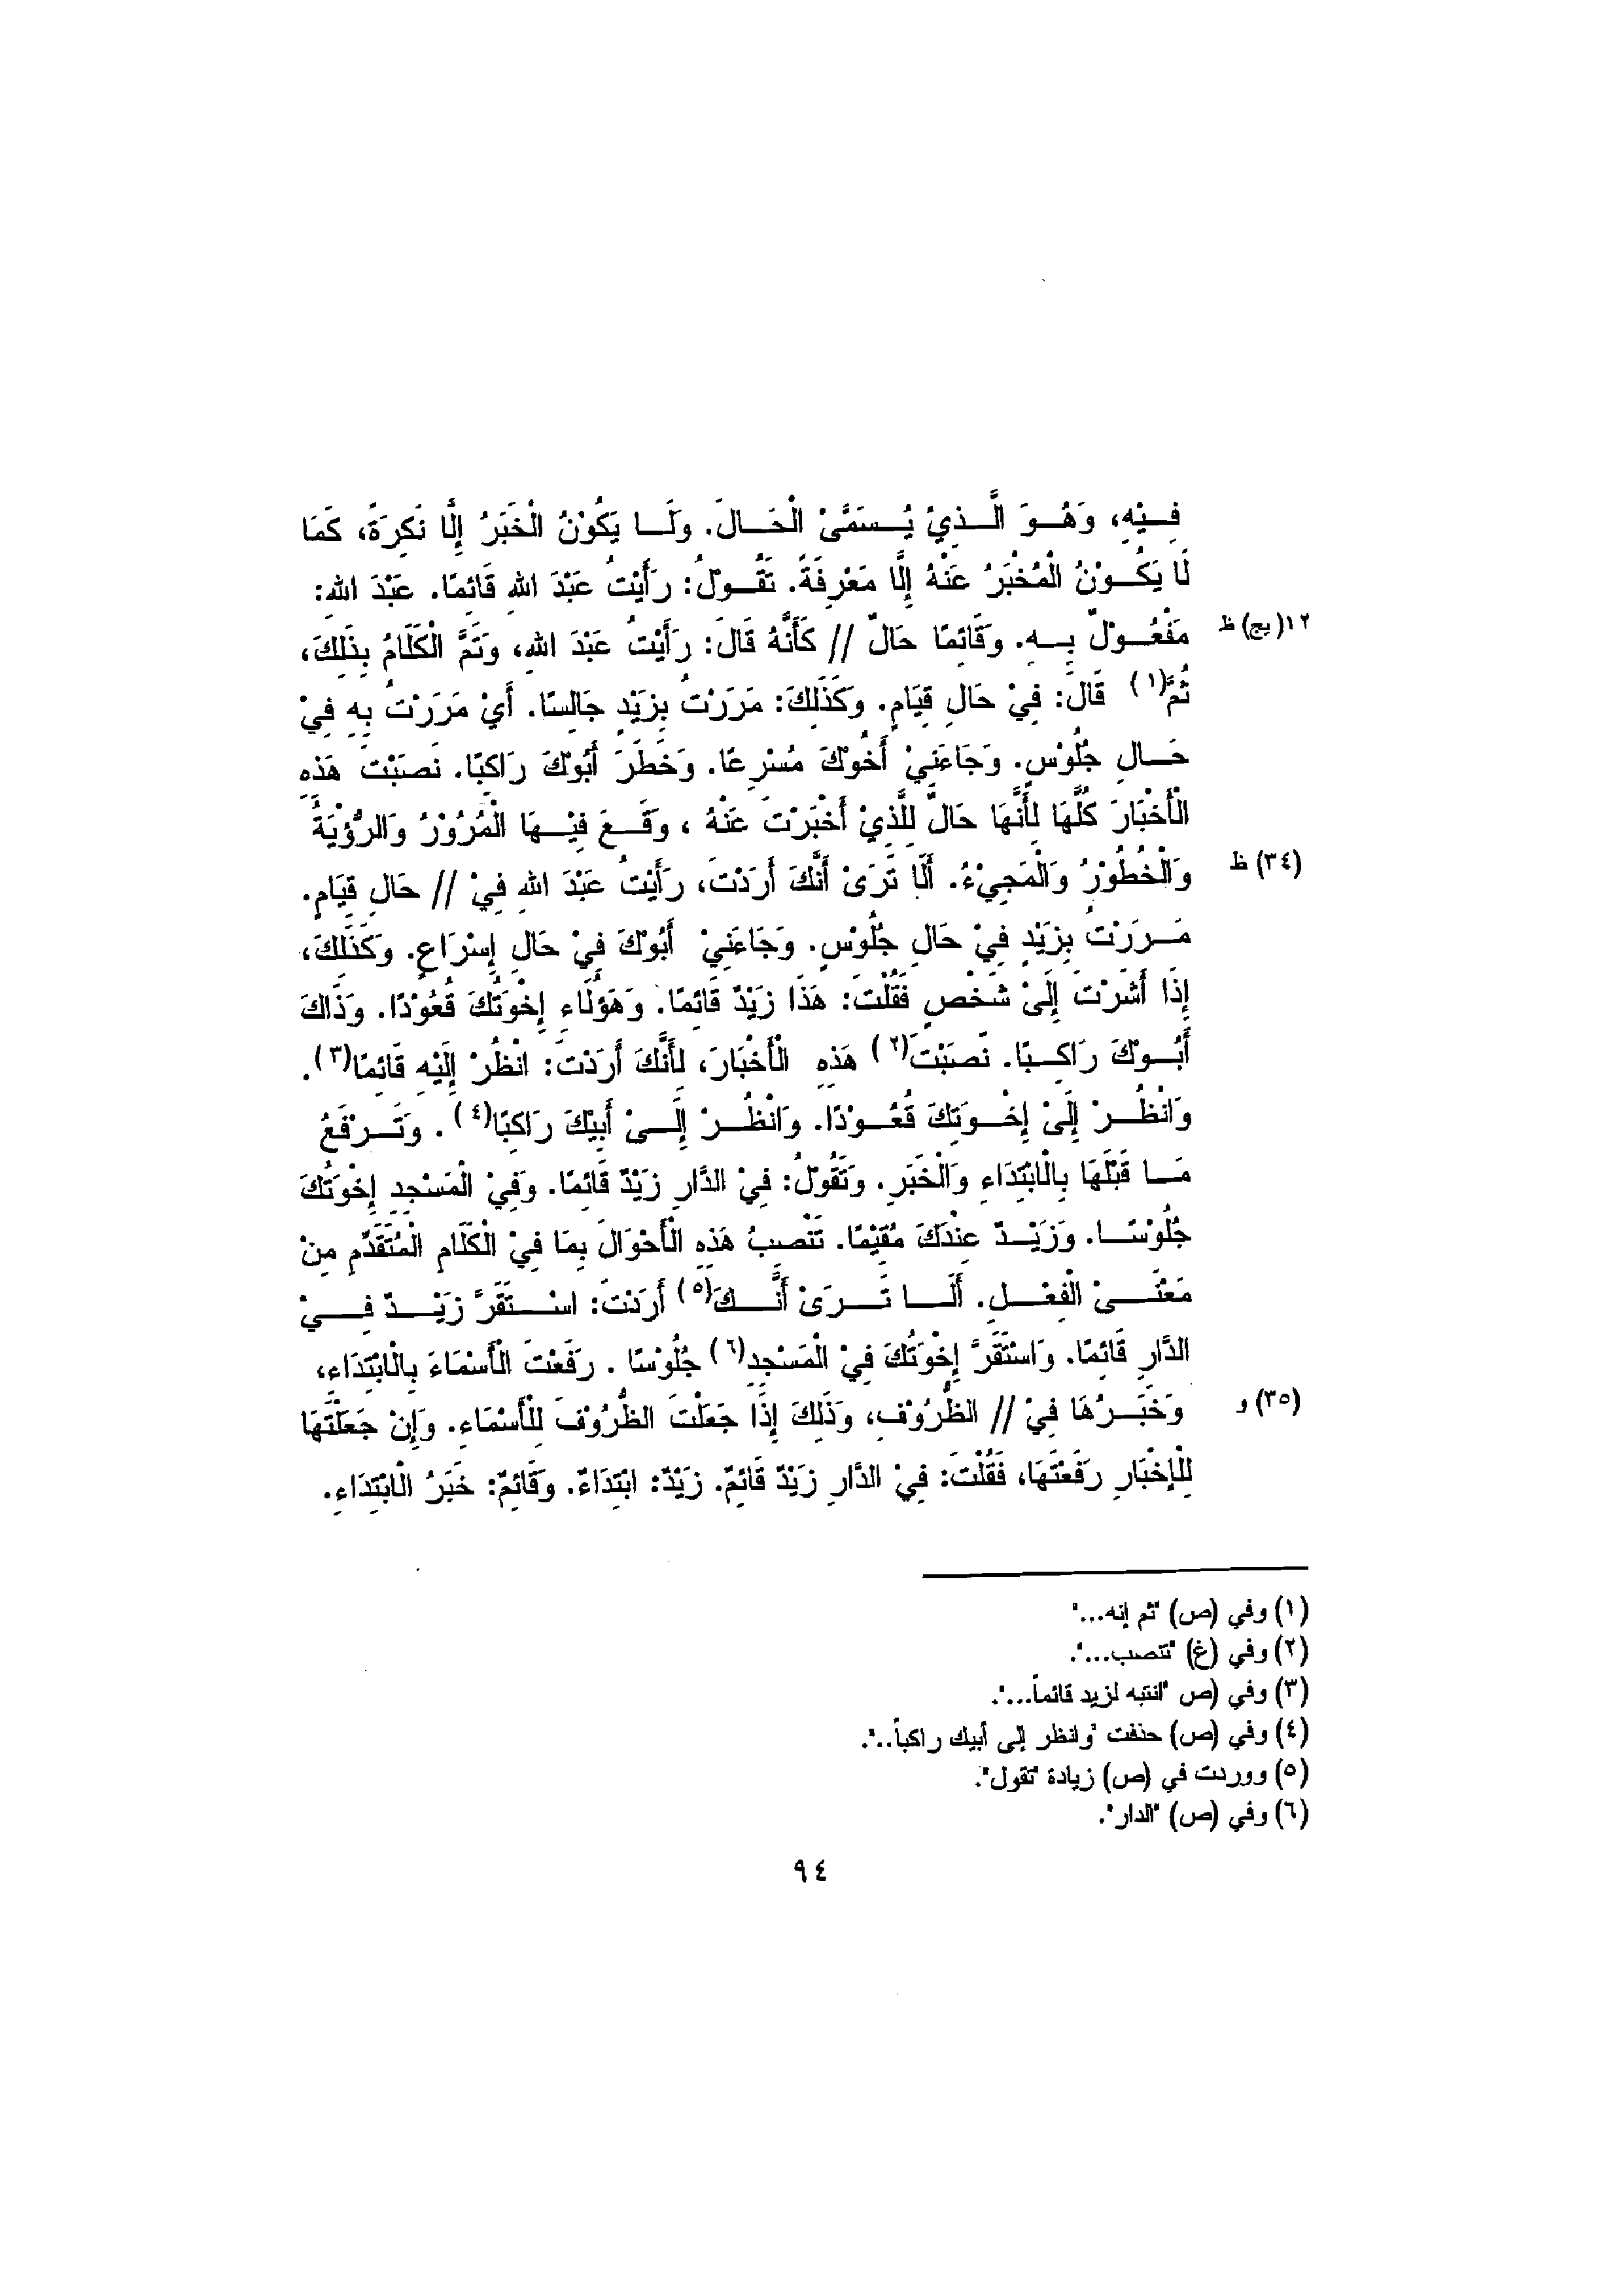 فِيْهِ، وَهُوَ الَّذِيْ يُسَمَّىْ الْحَالَ. وَلَا يَكُوْنُ الْخَبَرُ إِلَّا نَكِرَةً، كَمَا
لَا يَكُوْنُ الْمُخْبَرُ عَنْهُ إِلَّا مَعْرِفَةً. تَقُوْلُ: رَأَيْتُ عَبْدَ اللهِ قَائِمًا. عَبْدَ اللهِ:
مَفْعُوْلٌ بِهِ. وَقَائِمًا حَالٌ // كَأَنَّهُ قَالَ: رَأَيْتُ عَبْدَ اللهِ، وَتَمَّ الْكَلَامُ بِذَلِكَ، ١٢(يج) ظ
ثُمَّ(١) قَالَ: فِيْ حَالِ قِيَامٍ. وَكَذَلِكَ: مَرَرْتُ بِزَيْدٍ جَالِسًا. أَيْ مَرَرْتُ بِهِ فِيْ
حَالِ جُلُوْسٍ. وَجَاءَنِيْ أَخُوْكَ مُسْرِعًا. وَخَطَرَ أَبُوْكَ رَاكِبًا. نَصَبْتَ هَذِهِ
الْأَخْبَارَ كُلَّهَا لِأَنَّهَا حَالٌ لِلَّذِيْ أَخْبَرْتَ عَنْهُ ، وَقَعَ فِيْهَا الْمُرُوْرُ وَالرُّؤْيَةُ
وَالْخُطُوْرُ وَالْمَجِيْءُ. أَلَا تَرَىْ أَنَّكَ أَرَدْتَ، رَأَيْتُ عَبْدَ اللهِ فِيْ // حَالِ قِيَامٍ. (٣٤) ظ
مَرَرْتُ بِزَيْدٍ فِيْ حَالِ جُلُوْسٍ. وَجَاءَنِيْ أَبُوْكَ فِيْ حَالِ إِسْرَاعٍ. وَكَذَلِكَ،
إِذَا أَشَرْتَ إِلَىْ شَخْصٍ فَقُلْتَ: هَذَا زَيْدٌ قَائِمًا. وَهَؤُلَاءِ إِخْوَتُكَ قُعُوْدًا. وَذَاكَ
أَبُوْكَ رَاكِبًا. نَصَبْتَ(٢) هَذِهِ الْأَخْبَارَ، لِأَنَّكَ أَرَدْتَ: انْظُرْ إِلَيْهِ قَائِمًا(٣).
وَانْظُرْ إِلَىْ إِخْوَتِكَ قُعُوْدًا. وَانْظُرْ إِلَىْ أَبِيْكَ رَاكِبًا(٤). وَتَرْفَعُ
مَا قَبْلَهَا بِالْابْتِدَاءِ وَالْخَبَرِ. وَتَقُوْلُ: فِيْ الدَّارِ زَيْدٌ قَائِمًا. وَفِيْ الْمَسْجِدِ إِخْوَتُكَ
جُلُوْسًا. وَزَيْدٌ عِنْدَكَ مُقِيْمًا. تَنْصِبُ هَذِهِ الْأَحْوَالَ بِمَا فِيْ الْكَلَامِ الْمُتَقَدِّمِ مِنْ
مَعْنَىْ الْفِعْلِ. أَلَا تَرَىْ أَنَّكَ(٥) أَرَدْتَ: اسْتَقَرَّ زَيْدٌ فِيْ
الدَّارِ قَائِمًا. وَاسْتَقَرَّ إِخْوَتُكَ فِيْ الْمَسْجِدِ(٦) جُلُوْسًا . رَفَعْتَ الْأَسْمَاءَ بِالْابْتِدَاءِ،
وَخَبَرُهَا فِيْ // الظُّرُوْفِ، وَذَلِكَ إِذَا جَعَلْتَ الظُّرُوْفَ لِلْأَسْمَاءِ. وَإِنْ جَعَلْتَهَا (٣٥) و
لِلْإِخْبَارِ رَفَعْتَهَا، فَقُلْتَ: فِيْ الدَّارِ زَيْدٌ قَائِمٌ. زَيْدٌ: ابْتِدَاءٌ. وَقَائِمٌ: خَبَرُ الْابْتِدَاءِ.
(١) وفي (ص) "ثم إنه..."
(٢) وفي (غ) "تنصب...".
(٣) وفي (ص "انتبه لزيد قائماً...".
(٤) وفي (ص) حذفت "وانظر إلى أبيك راكباً..".
(٥) ووردت في (ص) زيادة "تقول".
(٦) وفي (ص) "الدار".
٩٤